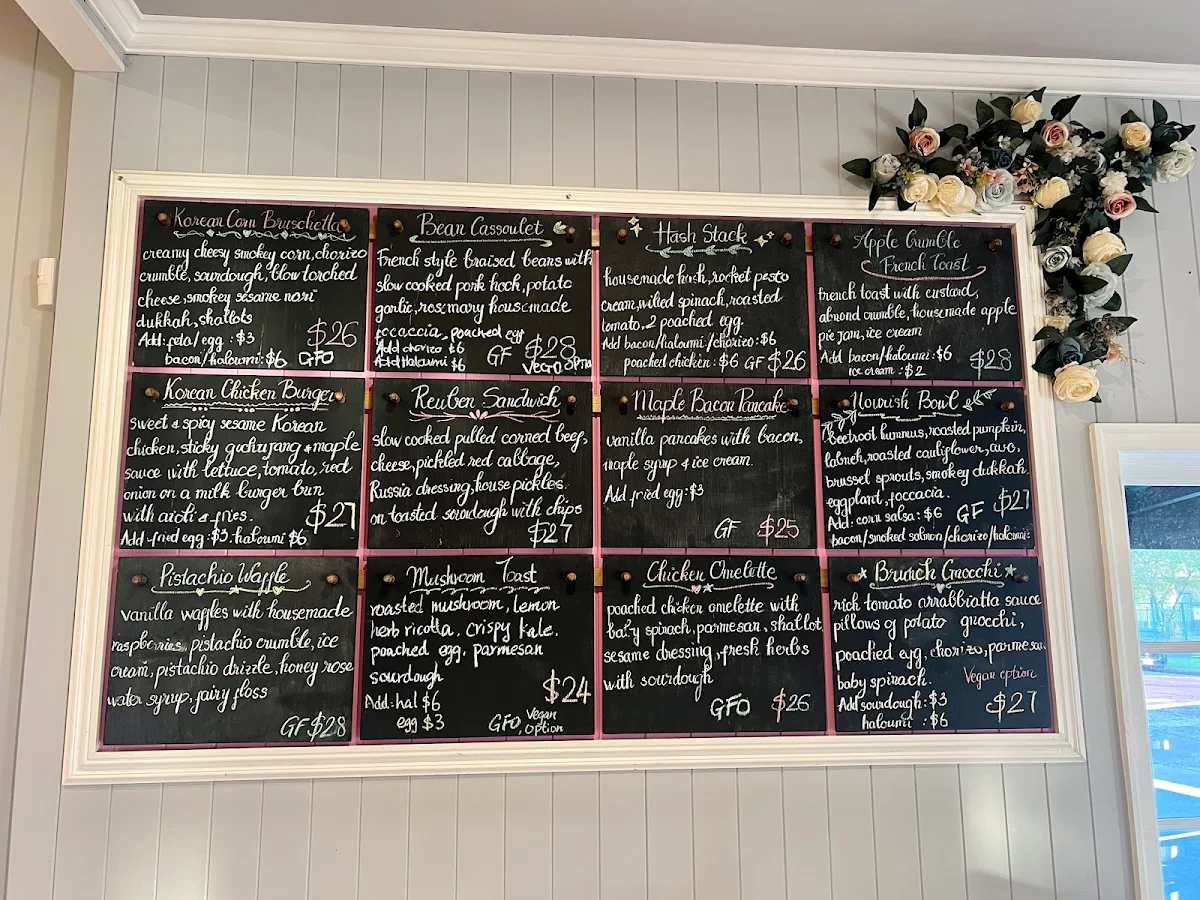 Korean Corn Bruschetta
creamy cheesy smokey corn, chorizo
crumble, sourdough, blow torched
cheese, smokey sesame nori
dukkah, shallots
Add: feta/egg: $3
bacon/haloumi: $6
GFO
$26
Bean Cassoulet
French style braised beans with
slow cooked pork hock, potato
garlic, rosemary housemade
foccaccia, poached egg
Add chorizo $6
Add Haloumi $6
GF $28
VEGO option
Hash Stack
housemade hash, rocket pesto
cream, wilted spinach, roasted
tomato, 2 poached egg.
Add bacon/haloumi/chorizo: $6
poached chicken: $6 GF $26
Apple Crumble
French Toast
french toast with custard,
almond crumble, housemade apple
pie jam, ice cream
Add bacon/haloumi: $6
ice cream: $2
$28
Korean Chicken Burger
sweet & spicy sesame Korean
chicken, sticky gochujang & maple
sauce with lettuce, tomato, red
onion on a milk burger bun
with aioli & fries.
$27
Add-fried egg: $3, haloumi $6
Reuben Sandwich
slow cooked pulled corned beef,
cheese, pickled red cabbage,
Russia dressing, house pickles.
on toasted sourdough with chips
$27
Maple Bacon Pancake
vanilla pancakes with bacon,
maple syrup & ice cream.
Add fried egg: $3
GF $25
Nourish Bowl
beetroot hummus, roasted pumpkin,
labneh, roasted cauliflower, avo,
brussel sprouts, smokey dukkah
eggplant, foccacia.
Add: corn salsa: $6 GF $27
bacon/smoked salmon/chorizo/haloumi:
Pistachio Waffle
vanilla waffles with housemade
raspberries, pistachio crumble, ice
cream, pistachio drizzle, honey rose
water syrup, fairy floss
GF $28
Mushroom Toast
roasted mushroom, lemon
herb ricotta, crispy kale.
poached egg, parmesan
sourdough
Add: hal $6
egg $3
$24
GFO, Vegan
option
Chicken Omelette
poached chicken omelette with
baby spinach, parmesan, shallot
sesame dressing, fresh herbs
with sourdough
GFO $26
Brunch Gnocchi
rich tomato arrabbiatta sauce
pillows of potato gnocchi,
poached egg, chorizo, parmesan
baby spinach.
Vegan option
Add sourdough: $3
haloumi: $6
$27